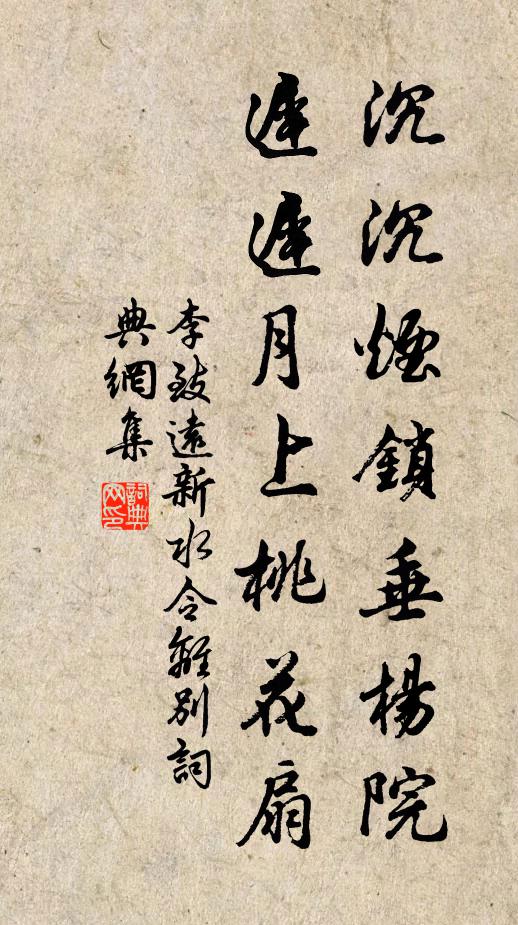 沉沉煙鎖垂楊院
遲遲月上桃花扇
李致遠新水令離別詞
典網集
詞典网印